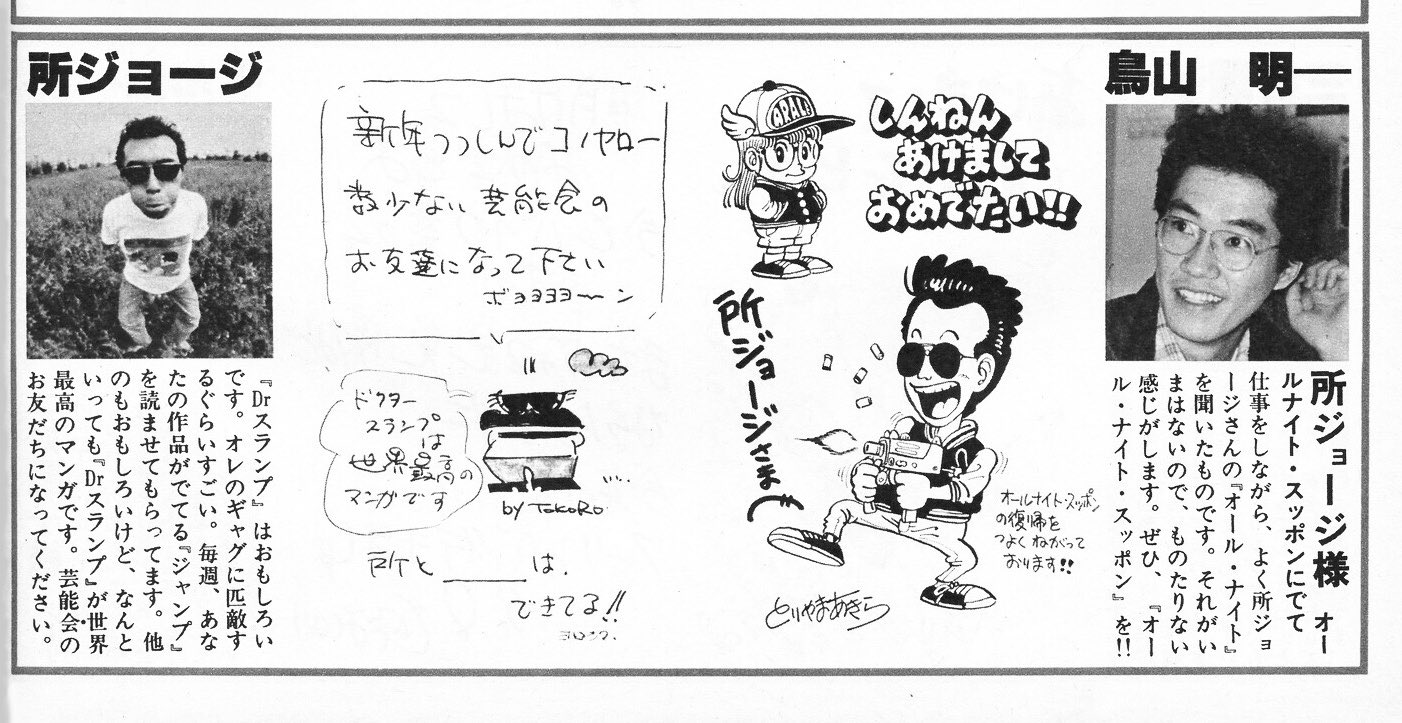 鳥山 明
所ジョージ様 オー
ルナイト・スッポンにでて
仕事をしながら、よく所ジョ
ージさんの『オール・ナイト』
を聞いたものです。それがい
まはないので、ものたりない
感じがします。ぜひ、『オー
ル・ナイト・スッポン』を!!
ARALE
しんねん
あけまして
おめでたい!!
所ジョージさま
オールナイト・スッポン
の復帰を
つよくねがって
おります!!
とりやまあきら
新年つつしんでコノヤロー
数少ない芸能会の
お友達になって下さい
ボヨヨヨヨ〜ン
ドクター
スランプ
は
世界最高の
マンガです
by TOKORO
所と______は、
できてる!!
ヨロシク、
所ジョージ
『Drスランプ』はおもしろい
です。オレのギャグに匹敵す
るぐらいすごい。毎週、あな
たの作品がでてる『ジャンプ』
を読ませてもらってます。他
のもおもしろいけど、なんと
いっても『Drスランプ』が世界
最高のマンガです。芸能会の
お友だちになってください。